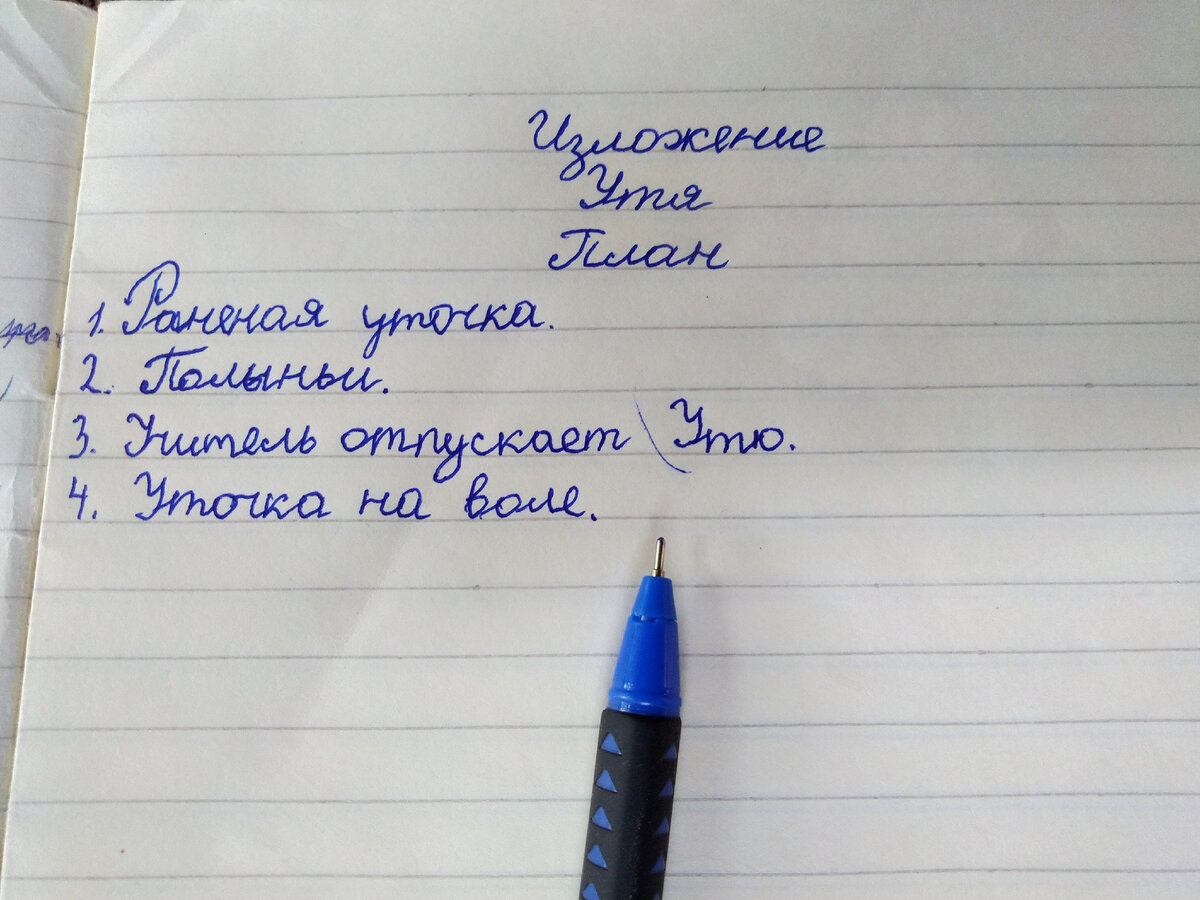 Изложение
Утя
План
1. Раненая уточка.
2. Полыньи.
3. Учитель отпускает Утю.
4. Уточка на воле.